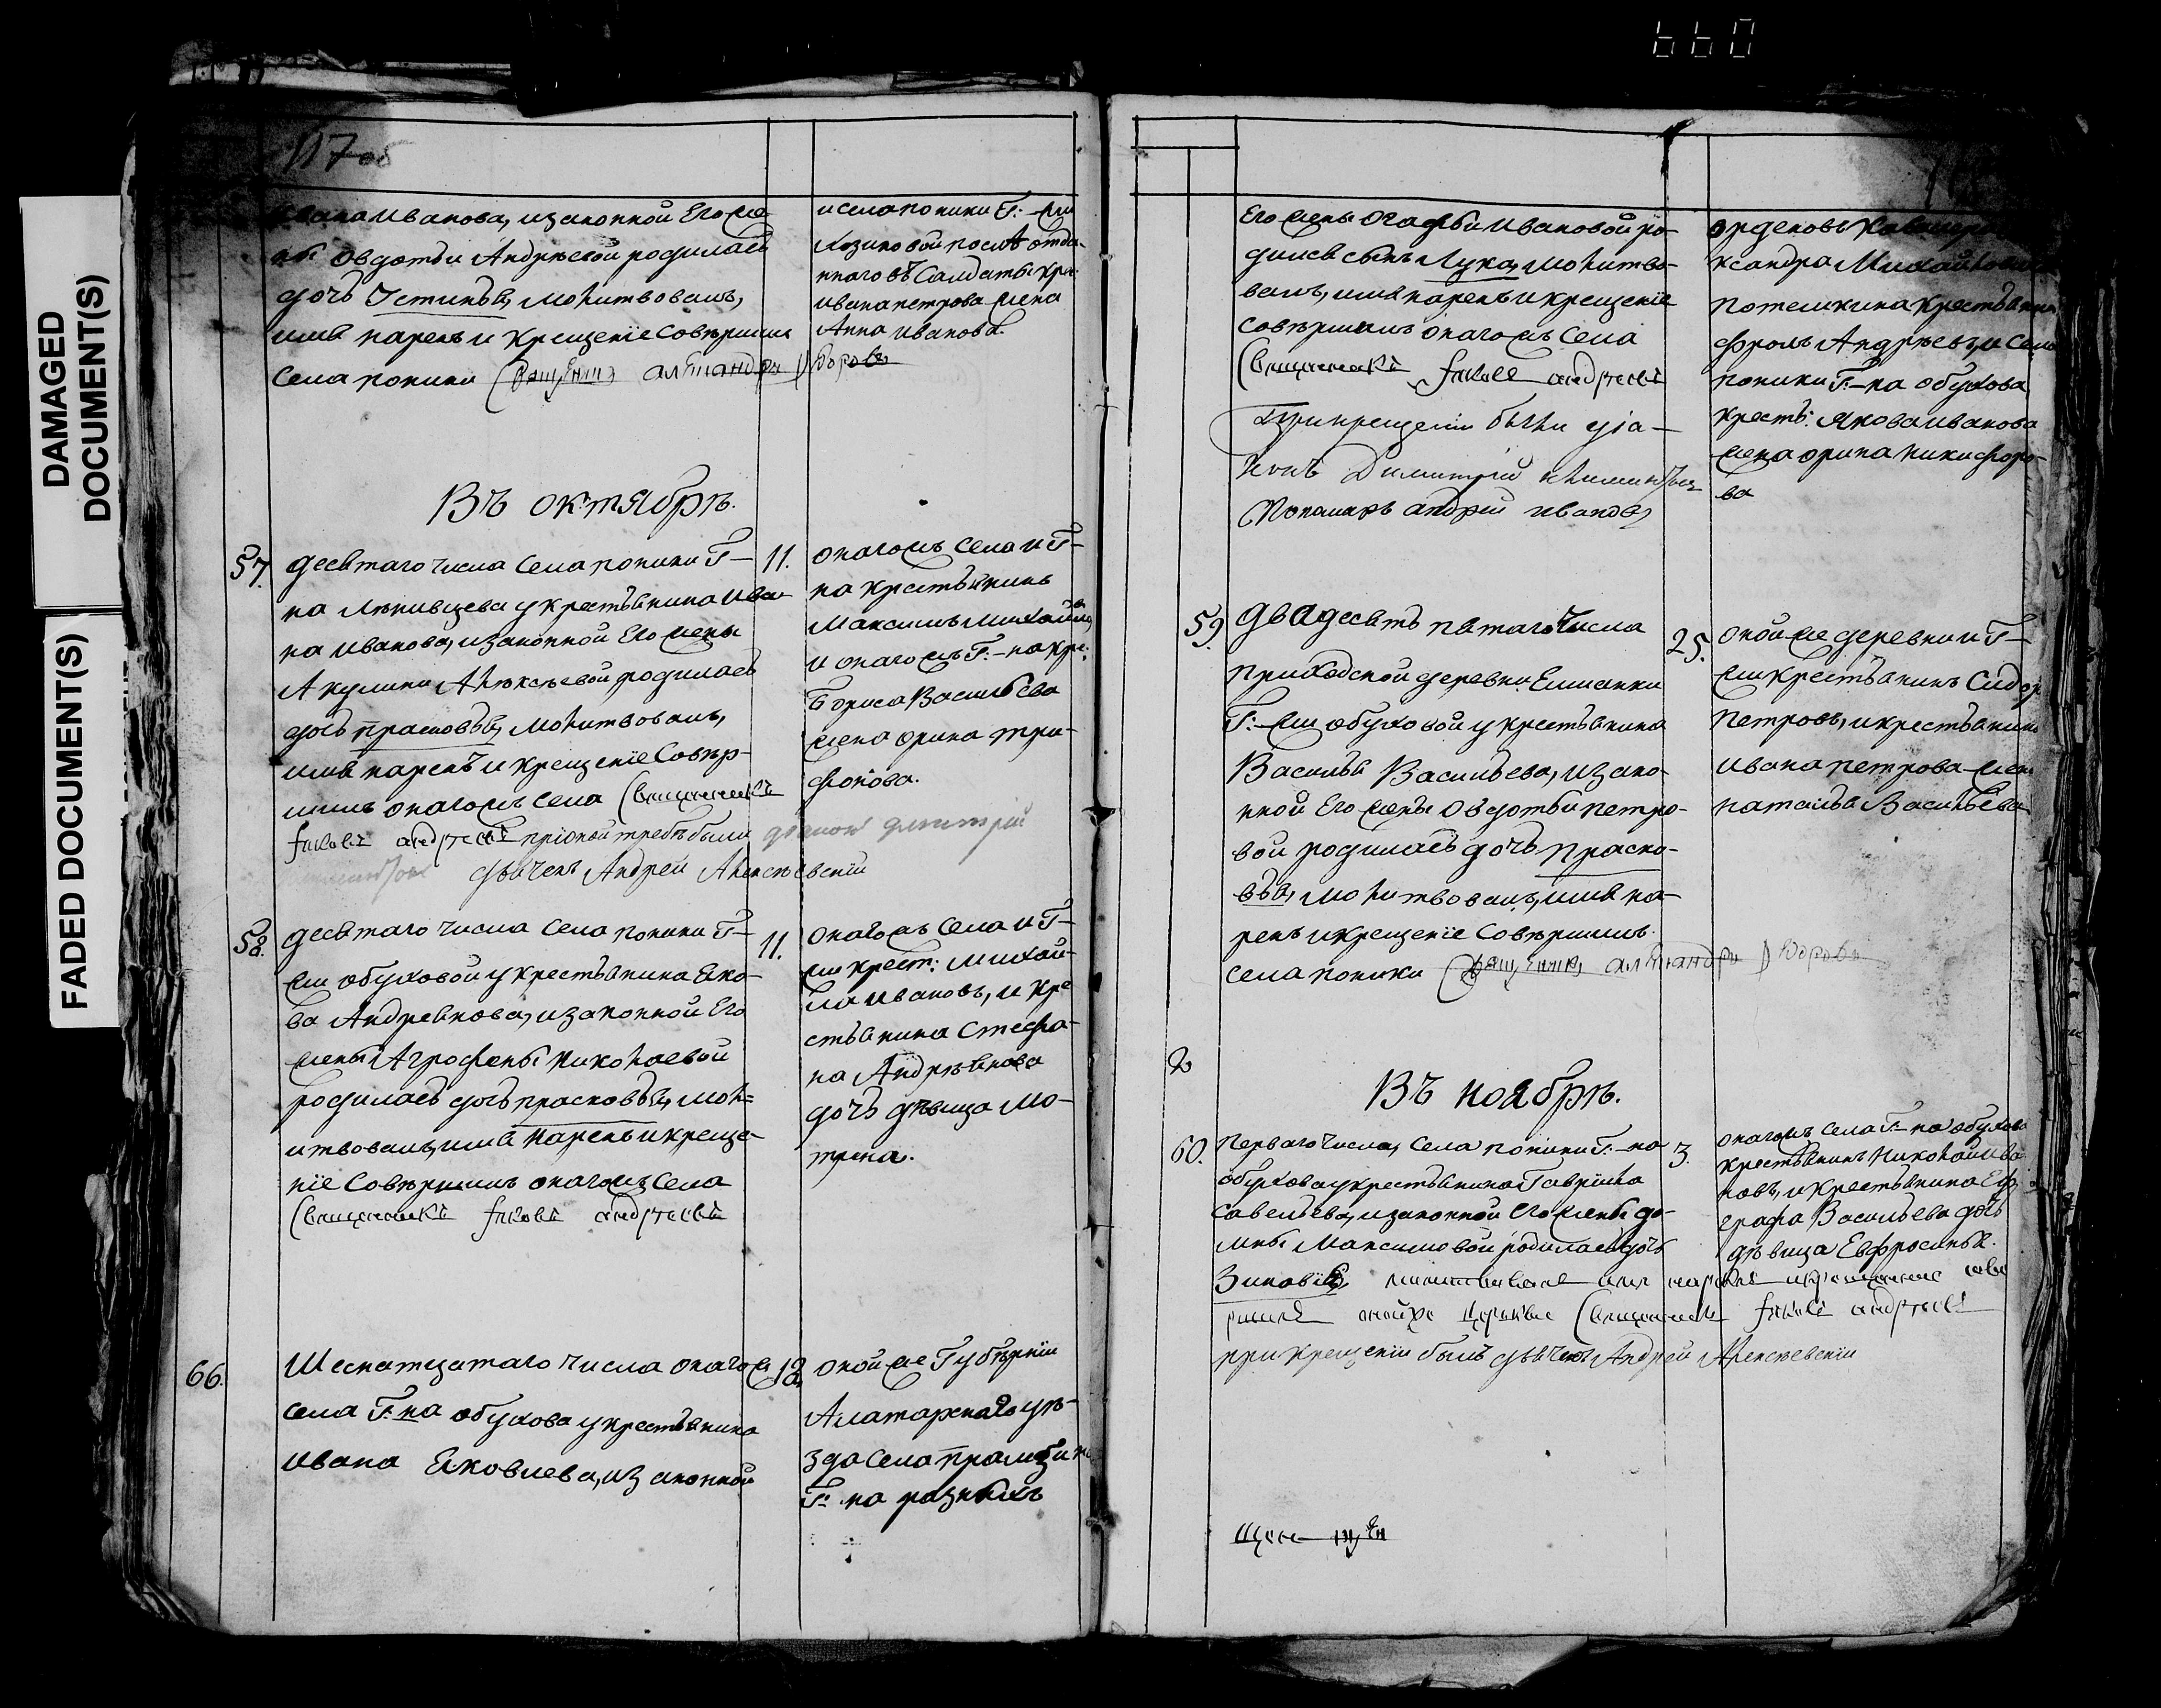 DAMAGED
DOCUMENT(S)
FADED DOCUMENT(S)
117 об
Ивана Иванова, изаконной Его же
ны Овдотьи Андрѣевой родилась
дочь Устинья, молитвовалъ,
имя нарекъ и крещение Совѣршилъ
Села поники
и села поники Г:-жи
Козиковой после отда-
нного въ Салдаты кре:
ивана петрова жена
Анна иванова.
Въ октябрѣ.
57.
десятаго числа Села поники Г-
на у крестьянина Ива
на иванова, изаконной Его жены
Акулины Алѣксѣевой родилась
дочь прасковья, молитвовалъ,
имя нарекъ и крещение Совѣр-
шилъ онагожъ Села Священникъ
Iаковъ андреевъ при оной требѣ были діаконъ димитрий
дьячекъ Андрей Алексѣевский
11.
онагожъ Села и Г-
на крестьянинъ
Максимъ Михайловъ,
и онагожъ Г:-на кре:
Бориса Васильева
жена орина три-
фонова.
58.
десятаго числа Села поники Г-
жи обуховой у крестьянина Яко-
ва Андреянова, изаконной Его
жены Агрофены Николаевой
родилась дочь прасковья, мол=
итвовалъ, имя нарекъ и креще-
ние Совѣршилъ онагожъ Села
Священникъ Iаковъ андреевъ
11.
онагожъ Села и Г-
жи крест: Михай-
ла ивановъ, и кре
стьянина Стефа-
на Андрѣянова
дочь дѣвица Мо-
трена.
66.
Шеснатцатаго числа онагож
села Г:на обухова у крестьянина
ивана Яковлева, из аконной
18
оной же Губѣрнии
Алатарскаго уѣ-
зда Села промзина
Г: на разныхъ
Его жены огафьи ивановой ро-
дился сынъ Лука, молитво-
валъ, имя нарекъ и крещение
Совѣршилъ онагожъ Села
Священникъ Iаковъ андреевъ
При крещении были діа-
конъ Димитрий
Пономарь андрей ивановъ
орденовъ Кавалера
ксандра Михайлови
потемкина крестьянинъ
фролъ Андрѣевъ, и Села
поники Г:-на обухова
кресть: Якова иванова
жена орина никифоро-
ва
59.
двадесять пятаго числа
приходской деревни Елшанки
Г:-жи обуховой у крестьянина
Василья Васильева, изако-
нной Его жены Овдотьи петро-
вой родилась дочь праско-
вья, молитвовалъ, имя на-
рекъ и крещение Совѣршилъ.
села поники
25.
оной же деревни и Г-
жи крестьянинъ Сидор
петровъ, и крестьянин
ивана петрова жена
наталья Васильева
Въ ноябрѣ.
60.
перваго числа, села поники Г:-на
обухова у крестьянина Гаврила
Савельева, изаконной его жены до-
мны Максимовой родилась дочь
Зиновия, молитвовалъ имя нарекъ и крещение сове
ршилъ церкви Священникъ Iаковъ андреевъ
при крещении былъ дьячекъ Андрей Алексѣевский
3.
онагожъ села Г-на обухова
крестьянинъ Николай ива
новъ, и крестьянина Ев
графа Васильева дочь
дѣвица Евфросинья.